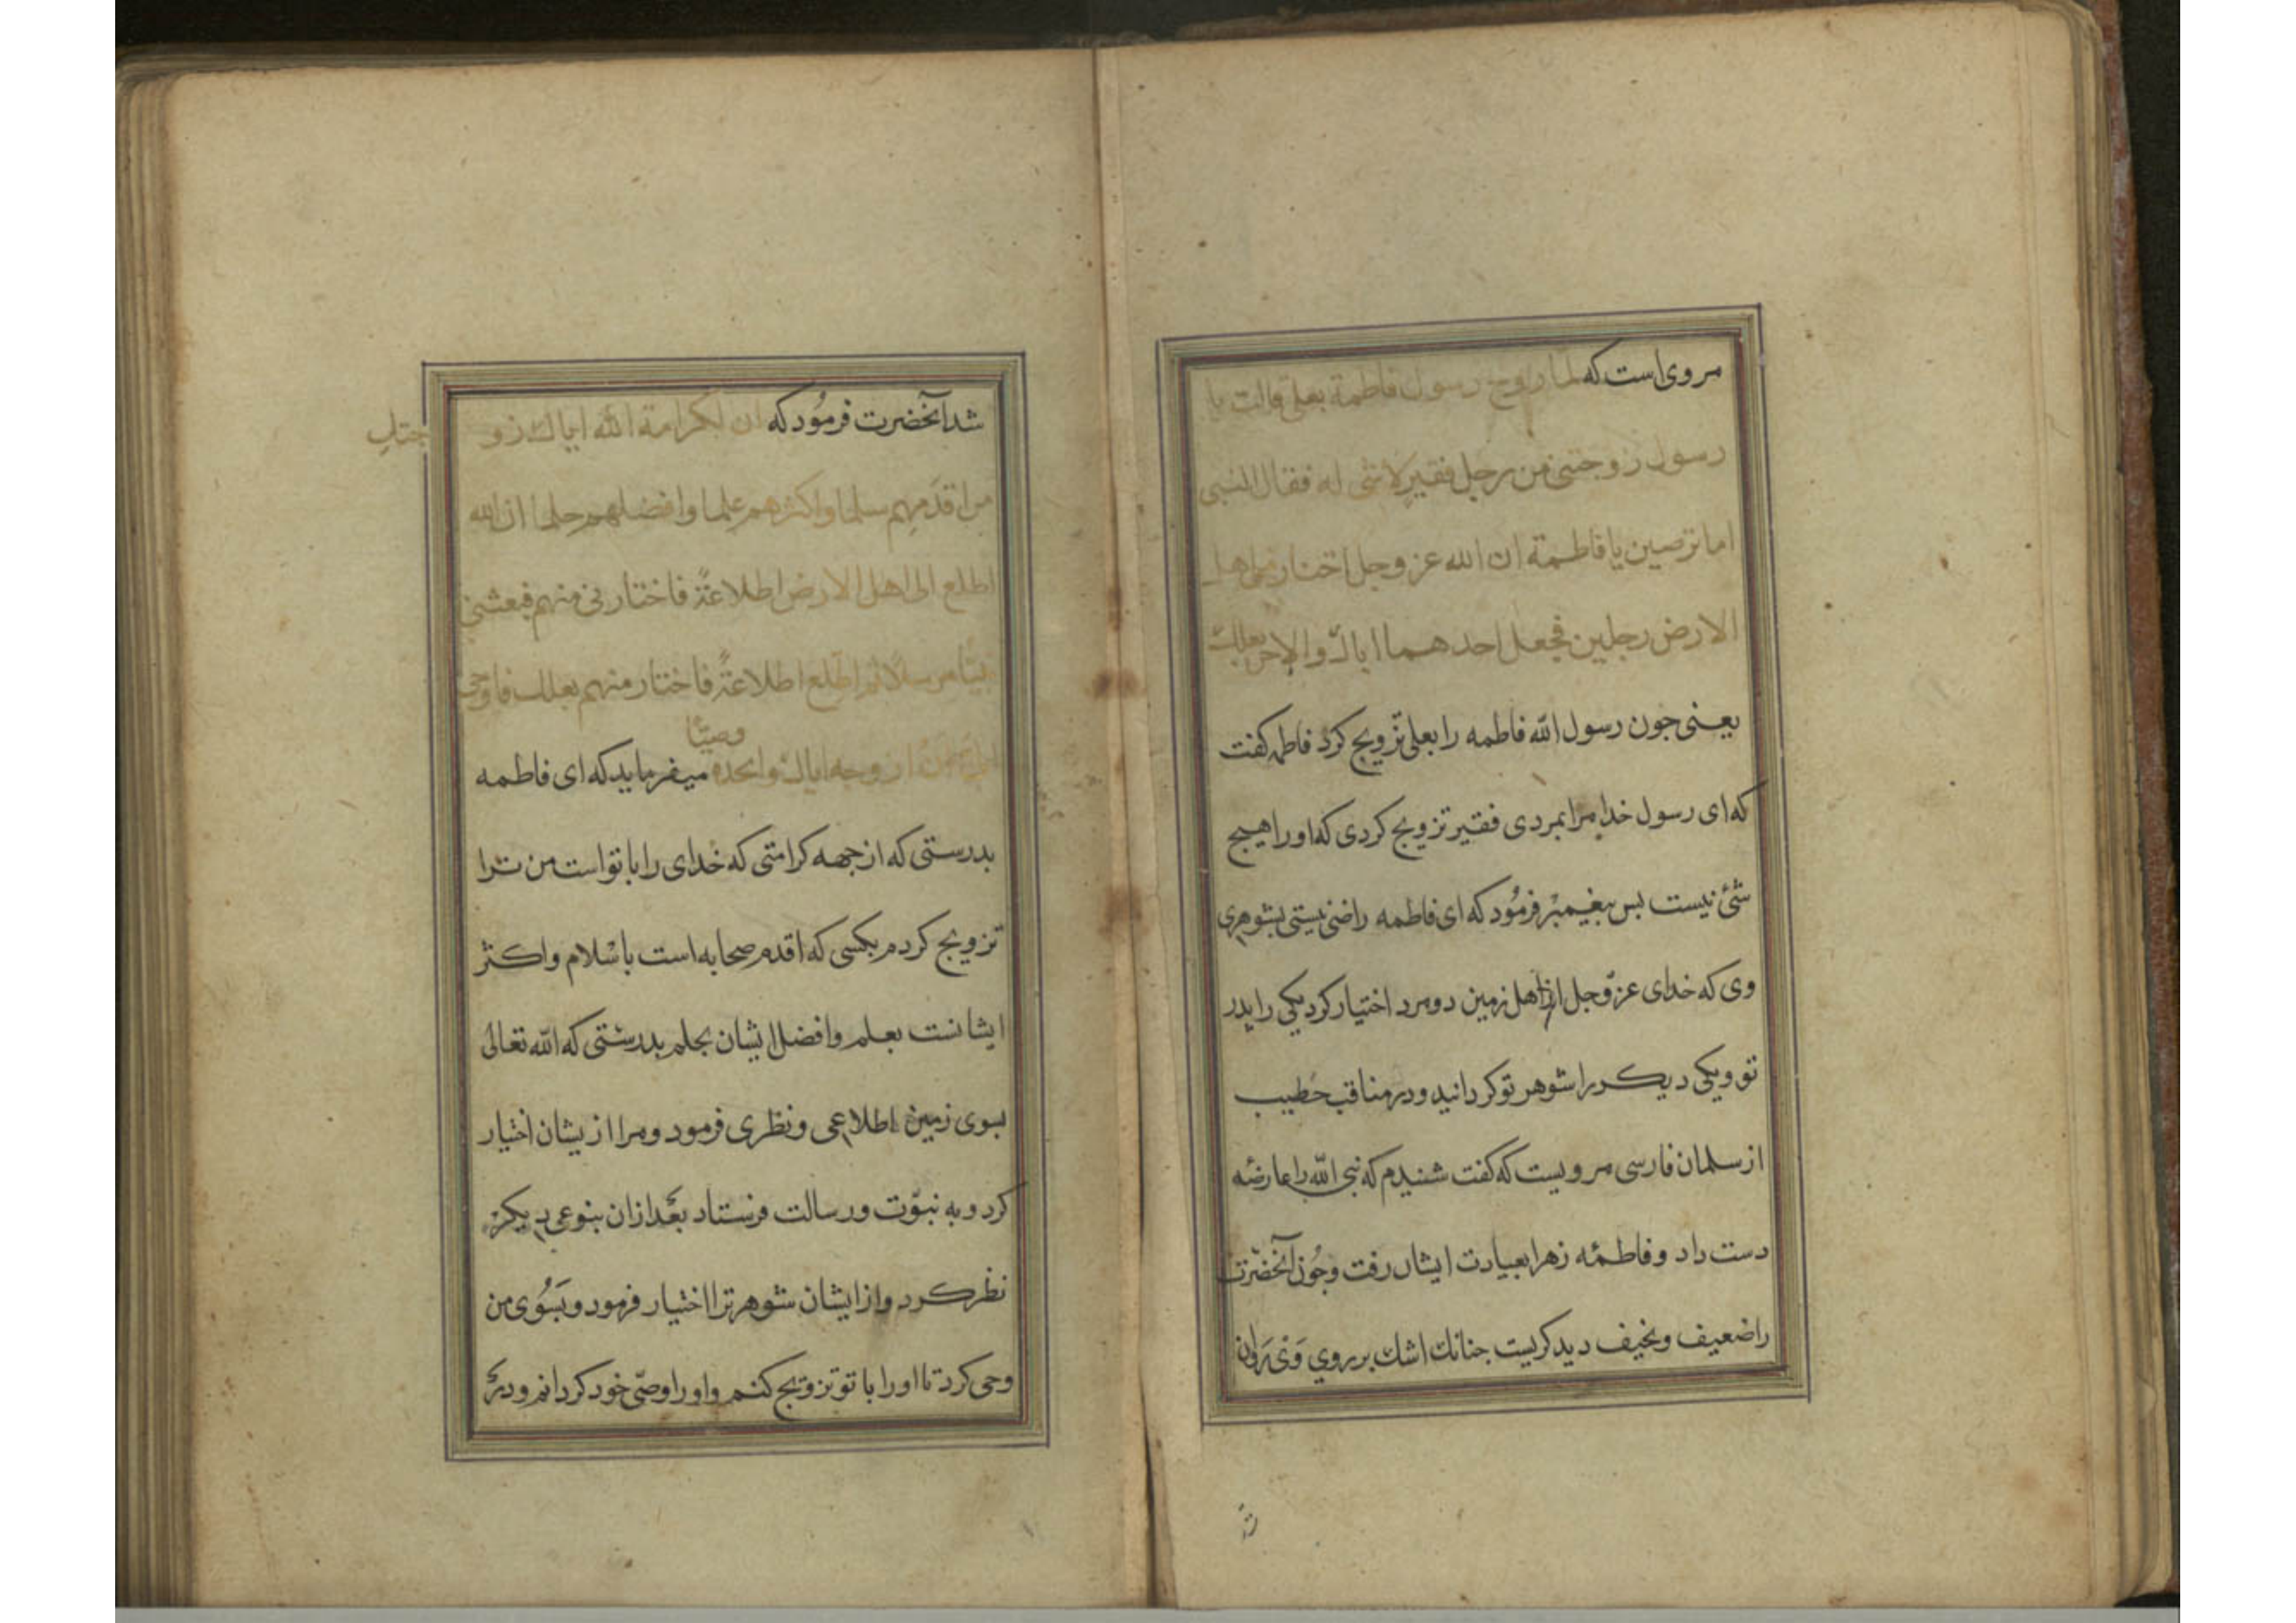 مروی است که لما زوج رسول فاطمة بعلی قالت یا
رسول زوجتنی من رجل فقیر لا شی له فقال النبی
اما ترضین یا فاطمة ان الله عز وجل اختار من اهل
الارض رجلین فجعل احدهما اباک والاخر بعلک
یعنی جون رسول الله فاطمه را بعلی تزویج کرد فاطمه کفت
که ای رسول خدا مرا بمردی فقیر تزویج کردی که اورا هیچ
شئ نیست بس بیغیمبر فرمود که ای فاطمه راضی نیستی بشوهری
وی که خدای عز وجل از اهل زمین دو مرد اختیار کرد یکی را پدر
تو ویکی دیکر را شوهر تو کردانید ودر مناقب خطیب
از سلمان فارسی مرویست که کفت شنیدم که نبی الله را عارضه
دست داد وفاطمه زهرا بعیادت ایشان رفت وجون آنحضرت
را ضعیف ونحیف دید کریست جنانک اشک بر روی وی روان
شد آنحضرت فرمود که ان لکرامة الله ایاک زو
جتک
من اقدمهم سلما واکثرهم علما وافضلهم حلما ان الله
اطلع الی اهل الارض اطلاعة فاختارنی منهم فبعثنی
نبیا مرسلا ثم اطلع اطلاعة فاختار منهم بعلک فاوحی
الی ان ازوجه ایاک واتخذه وصیا میفرماید که ای فاطمه
بدرستی که از جهه کرامتی که خدای را با تو است من ترا
تزویج کردم بکسی که اقدم صحابه است باسلام واکثر
ایشانست بعلم وافضل ایشان بحلم بدرستی که الله تعالی
بسوی زمین اطلاعی ونظری فرمود ومرا از یشان اختیار
کرد و به نبوت ورسالت فرستاد بعد ازان بنوعی دیکر
نظر کرد واز ایشان شوهر ترا اختیار فرمود وبسوی من
وحی کرد تا اورا با تو تزویج کنم واورا وصی خود کردانم ودر